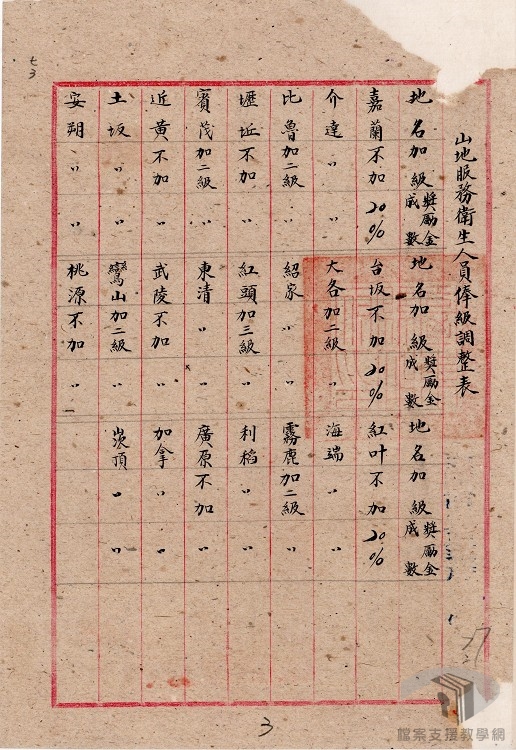 山地服務衛生人員俸級調整表
地名 加級 獎勵金成數 地名 加級 獎勵金成數 地名 加級 獎勵金成數
嘉蘭 不加 20% 台坂 不加 20% 紅叶 不加 20%
介達 〃 〃 大各 加二級 〃 海端 〃 〃
比魯 加二級 〃 紹家 〃 〃 霧鹿 加二級 〃
壢坵 不加 〃 紅頭 加三級 〃 利稻 〃 〃
賓茂 加二級 〃 東清 〃 〃 廣原 不加 〃
近黄 不加 〃 武陵 不加 〃 加拿 〃 〃
土坂 〃 〃 鸞山 加二級 〃 崁頂 〃 〃
安朔 〃 〃 桃源 不加 〃
七3
3
檔案支援教學網